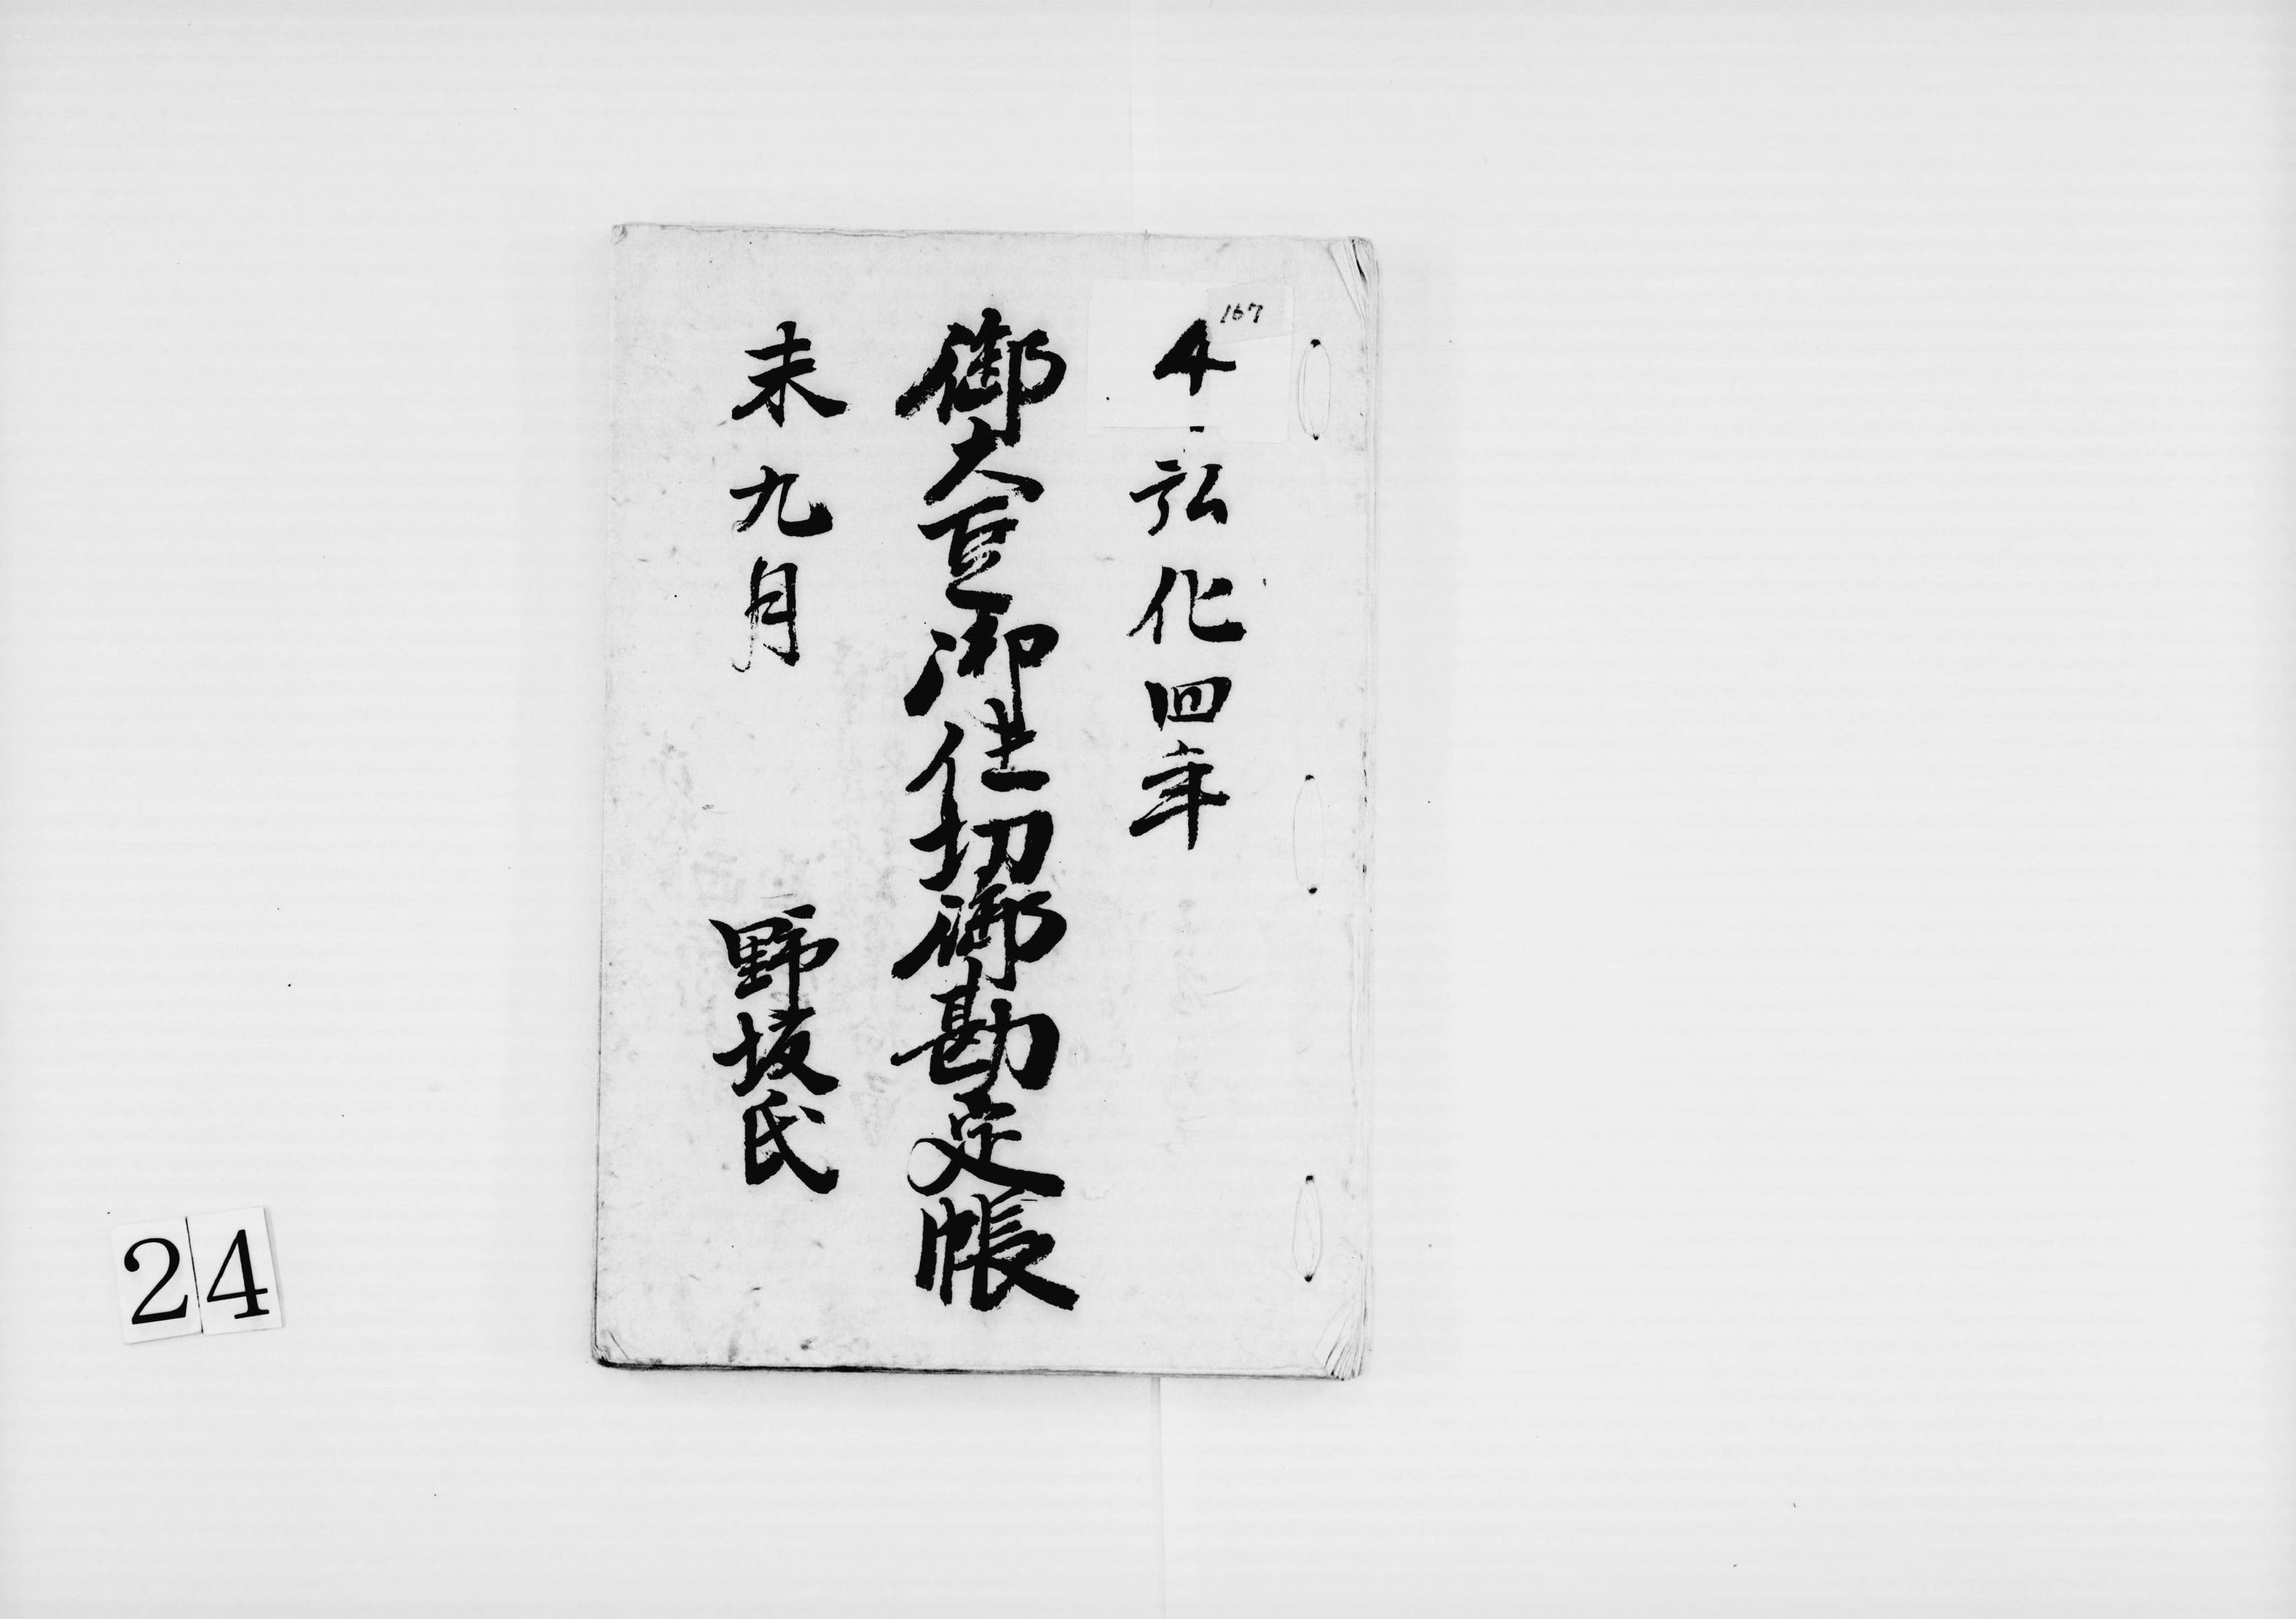 167
4
弘化四年
御大豆御仕切御勘定帳
未九月
野坂氏
24